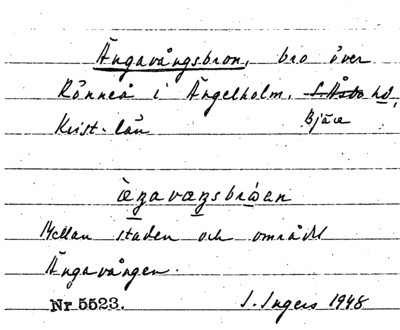 Ängavångsbron, bro över
Rönneå i Ängelholm. S. Åsbo hd,
Krist. län Bjäre
æŋavæŋsbrωen
Mellan staden och området
Ängavången.
Nr 5523. I. Ingers 1948